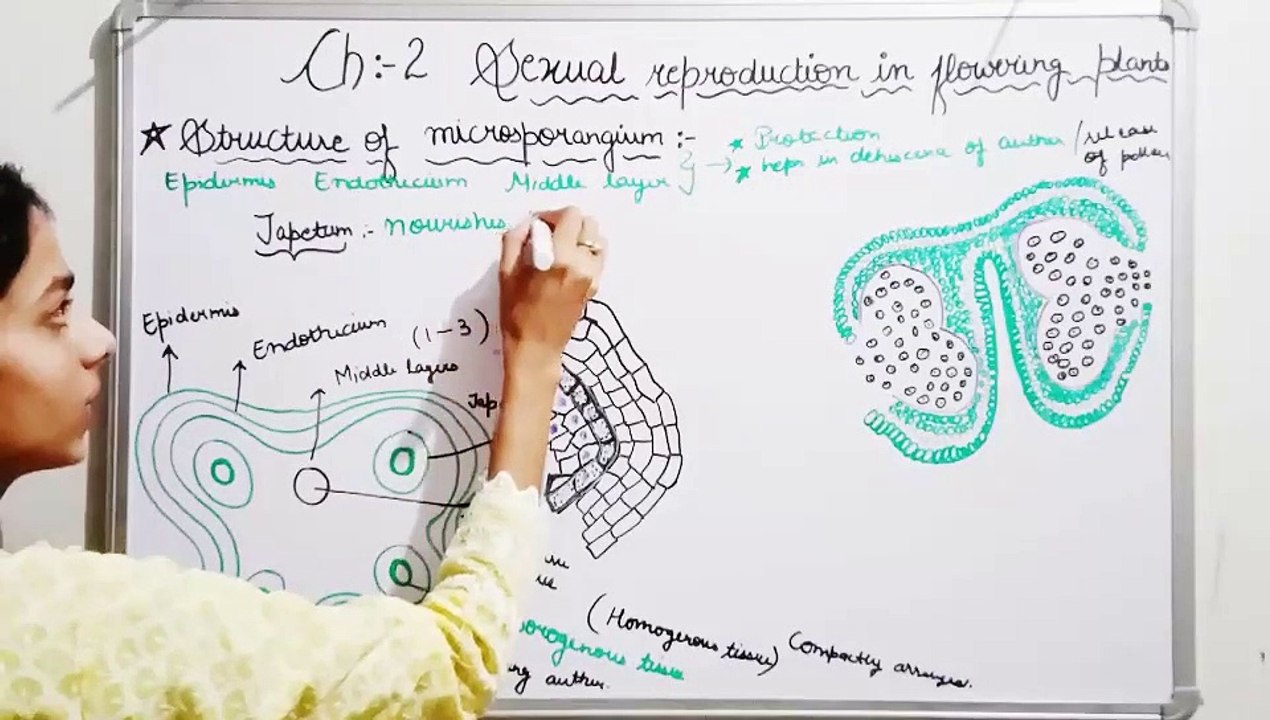 Ch:-2 Sexual reproduction in flowering plants
★ Structure of microsporangium :-
★ Protection
★ heps in dehiscence of anther / release of pollen
Epidermis Endothecium Middle layer } →
Tapetum :- nourishes
Epidermis
Endothecium (1-3)
Middle layers
Tap
(Homogenous tissue) Compactly arranged.
orogenous tissue
ng anther.